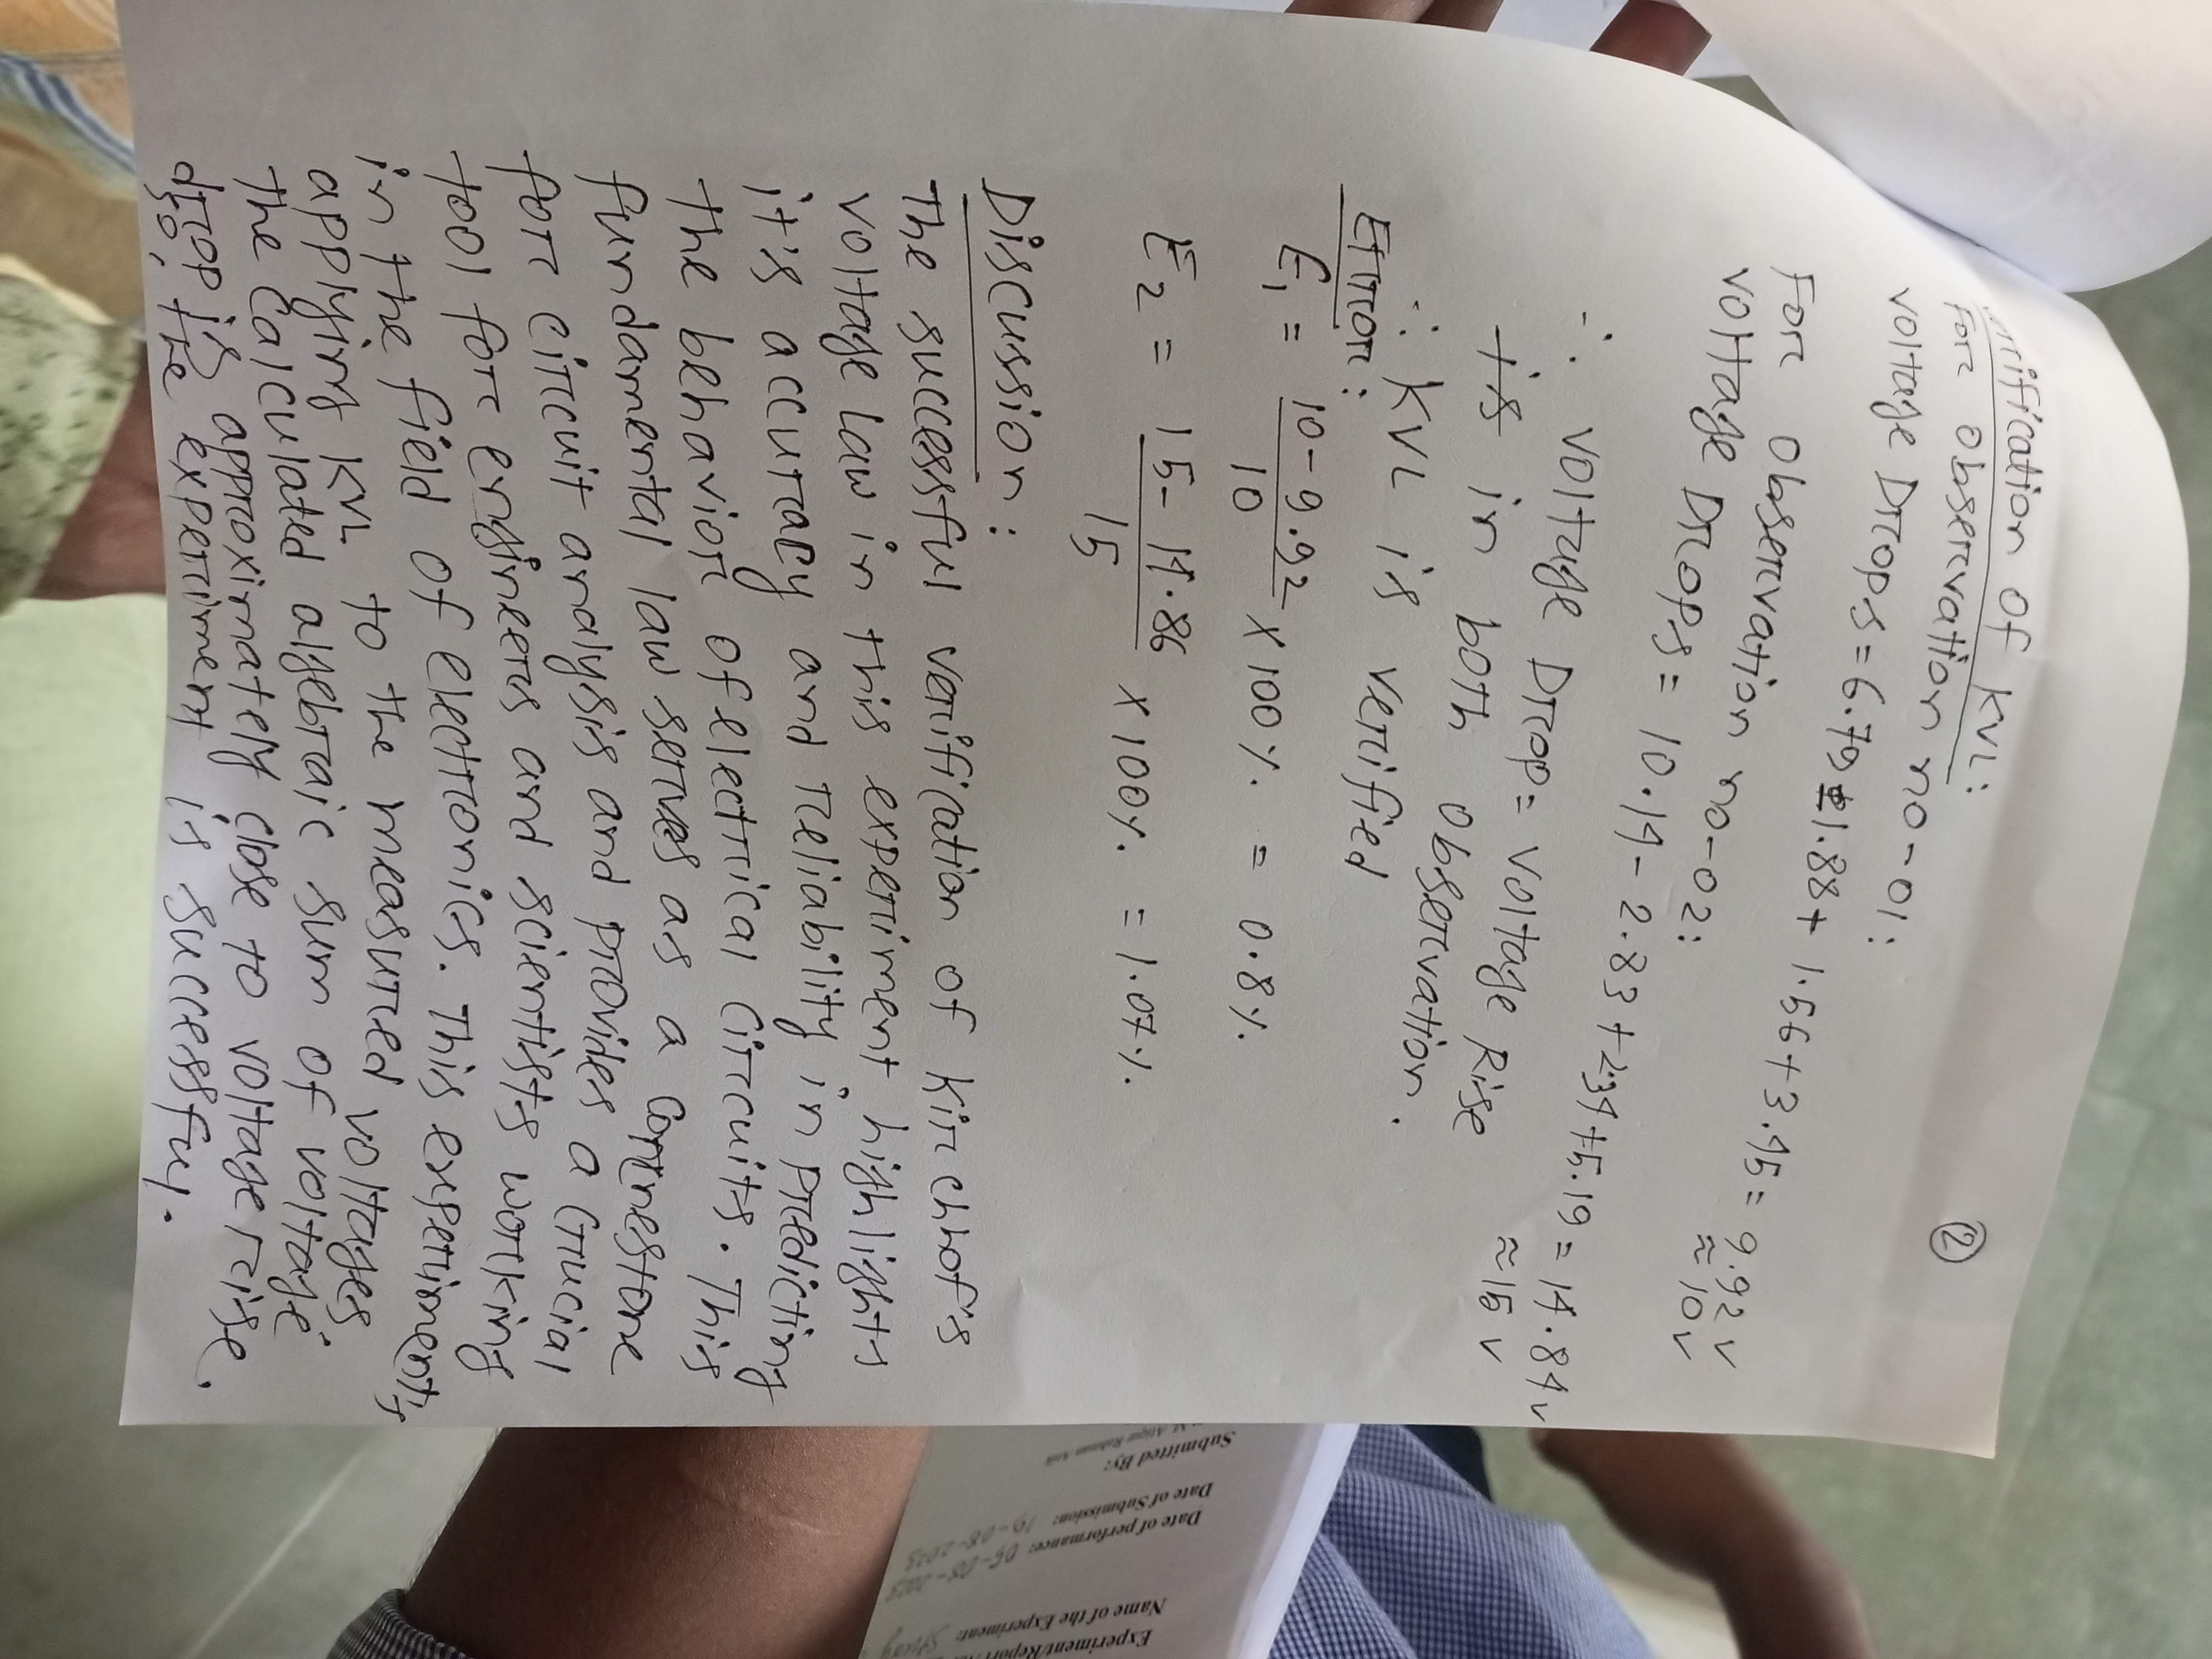 rification of KVL:
②
For observation no-01:
voltage Drops = 6.79 ± 1.88 + 1.56 + 3.45 = 9.92 v
≈ 10 v
For observation no-02:
voltage Drops = 10.14 - 2.83 + 2.34 + 5.19 = 14.84 v
≈ 15 v
∴ voltage Drop = voltage Rise
is in both observation.
∴ KVL is verified
Error:
E₁ = 10 - 9.92 / 10 × 100 % = 0.8 %
E₂ = 15 - 14.86 / 15 × 100 % = 1.07 %
Discussion:
The successful verification of Kirchhof's
voltage Law in this experiment highlights
it's accuracy and reliability in predicting
the behavior of electrical circuits. This
fundamental law serves as a cornerstone
for circuit analysis and provides a crucial
tool for engineers and scientists working
in the field of electronics. This experiment's
applying KVL to the measured voltages.
the calculated algebraic sum of voltage
drop is approximately close to voltage rise.
so, the experiment is successful.
Experiment/Report
Name of the Experiment:
Date of performance: 06-08-2025
Date of Submission: 10-08-2025
Submitted By: